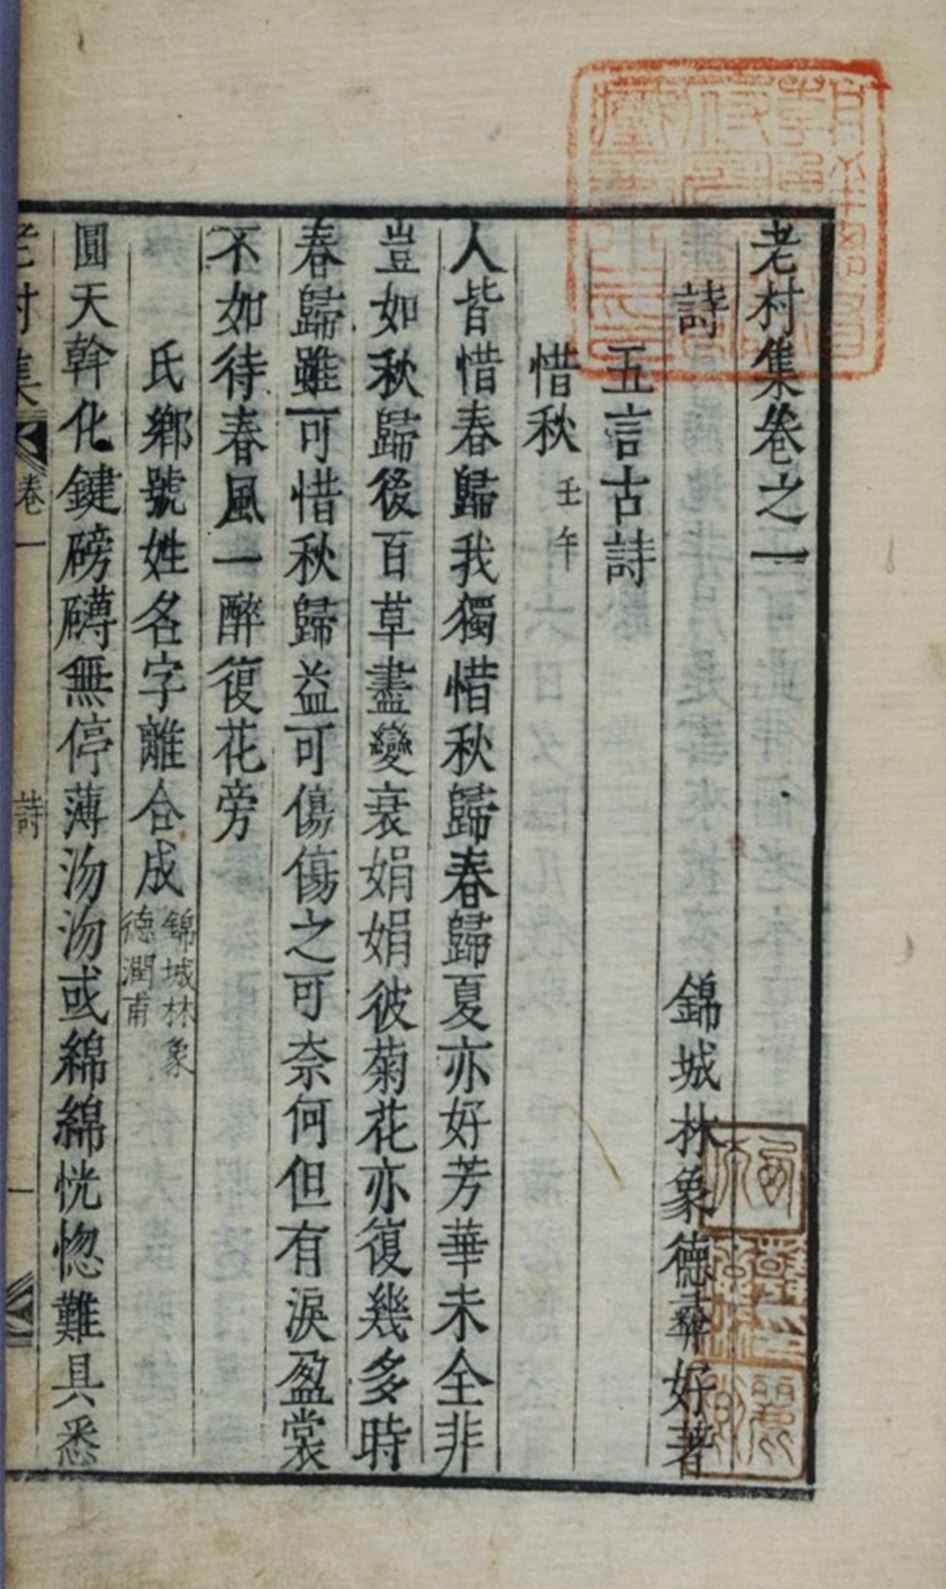 老村集卷之一
詩
錦城林象德彝好著
五言古詩
惜秋 壬午
人皆惜春歸我獨惜秋歸春歸夏亦好芳華未全非
豈如秋歸後百草盡變衰娟娟彼菊花亦復幾多時
春歸雖可惜秋歸益可傷傷之可奈何但有淚盈裳
不如待春風一醉復花旁
氏鄉號姓名字離合成 錦城林象
德潤甫
圓天斡化鍵磅礴無停薄沕沕或綿綿恍惚難具悉
老村集 卷一 詩 一